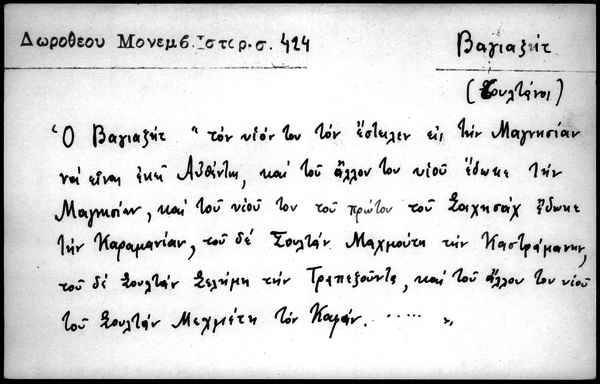 Δωροθεου Μονεμβ. Ιστορ. σ. 424
Βαγιαζήτ
(Σουλτάνοι)
Ὁ Βαγιαζήτ " τὸν υἱόν του τὸν ἔστειλεν εἰς τὴν Μαγνησίαν
νὰ εἶναι ἐκεῖ Αὐθέντης, καὶ τοῦ ἄλλου του υἱοῦ ἔδωκε τὴν
Μαγνησίαν, καὶ τοῦ υἱοῦ του τοῦ πρώτου τοῦ Σαχησάχ ἔδωκε
τὴν Καραμανίαν, τοῦ δέ Σουλτάν Μαχμούτη τὴν Καστράμονην,
τοῦ δέ Σουλτάν Σελήμη τὴν Τραπεζοῦντα, καὶ τοῦ ἄλλου του υἱοῦ
τοῦ Σουλτάν Μεχμέτη τὸν Καφάν. ..... "